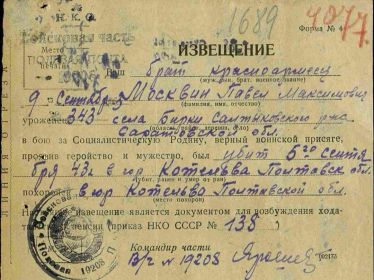 Н.К.О.
1689
4077.
Войсковая часть
Форма №
Место печати
ИЗВЕЩЕНИЕ
Ваш брат красноармеец
(муж, сын, брат, военное звание)
9 Сентябр Москвин Павел Максимович
(фамилия, имя, отчество)
уроженец 343 села Бирки Салтыковского р-на
Саратовской обл.
в бою за Социалистическую Родину, верный воинской присяге,
проявив геройство и мужество, был убит 5го Сентя
бря 43г. в гор Котельва Полтавск обл.
(убит, ранен и умер от ран)
похоронен в гор Котельва Полтавской обл.
(место похорон)
извещение является документом для возбуждения хода-
пенсии (приказ НКО СССР № 138).
Командир части
В/ч № 19208
Полевая 19208
ЛИНИЯ ОТРЕЗА